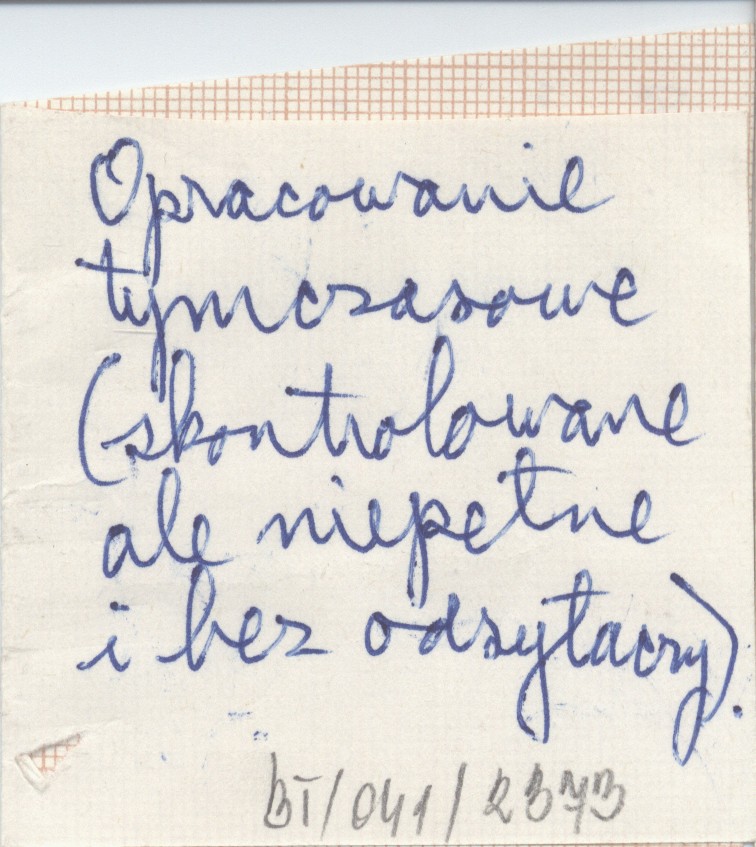 Opracowanie
tymczasowe
(skontrolowane
ale niepełne
i bez odsyłaczy).
BT/041/2373